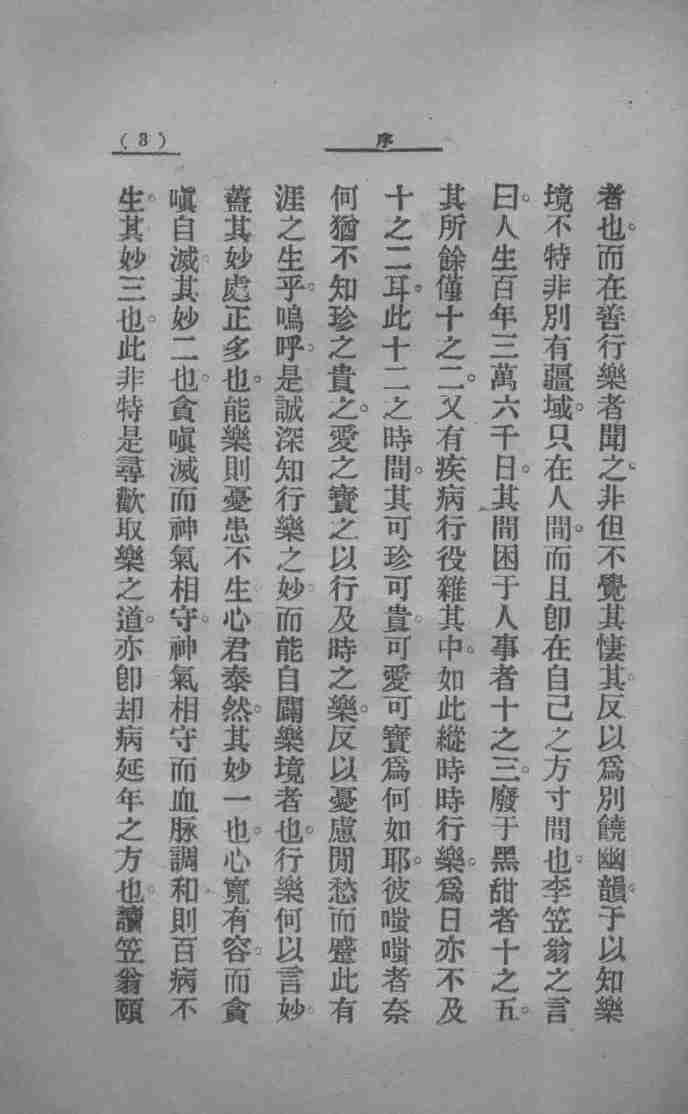 序
(3)
者也。而在善行樂者聞之。非但不覺其悽其。反以爲別饒幽韻。于以知樂
境不特非別有疆域。只在人間。而且卽在自己之方寸間也。李笠翁之言
曰。人生百年三萬六千日。其間困于人事者十之三。廢于黑甜者十之五。
其所餘僅十之二。又有疾病行役雜其中。如此縱時時行樂。爲日亦不及
十之二耳。此十二之時間。其可珍可貴。可愛可寶爲何如耶。彼嗤嗤者奈
何猶不知珍之貴之。愛之寶之以行及時之樂。反以憂慮閒愁而蹙此有
涯之生乎。嗚呼。是誠深知行樂之妙。而能自闢樂境者也。行樂何以言妙。
蓋其妙處正多也。能樂則憂患不生。心君泰然。其妙一也。心寬有容。而貪
嗔自滅。其妙二也。貪嗔滅而神氣相守。神氣相守而血脉調和。則百病不
生。其妙三也。此非特是尋歡取樂之道。亦卽却病延年之方也。讀笠翁頤